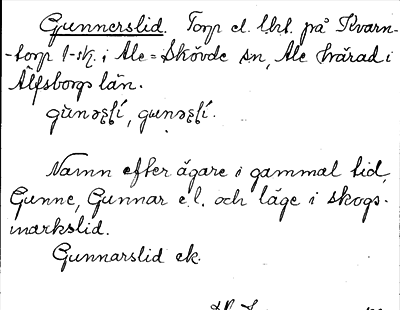 Gunnerslid. Torp el. lht. på Kvarn-
-torp 1-sk. i Ale=Skövde sn, Ale härad i
Älfsborgs län.
Namn efter ägare i gammal tid,
Gunne, Gunnar e.l. och läge i skogs-
markslid.
Gunnarslid ek.